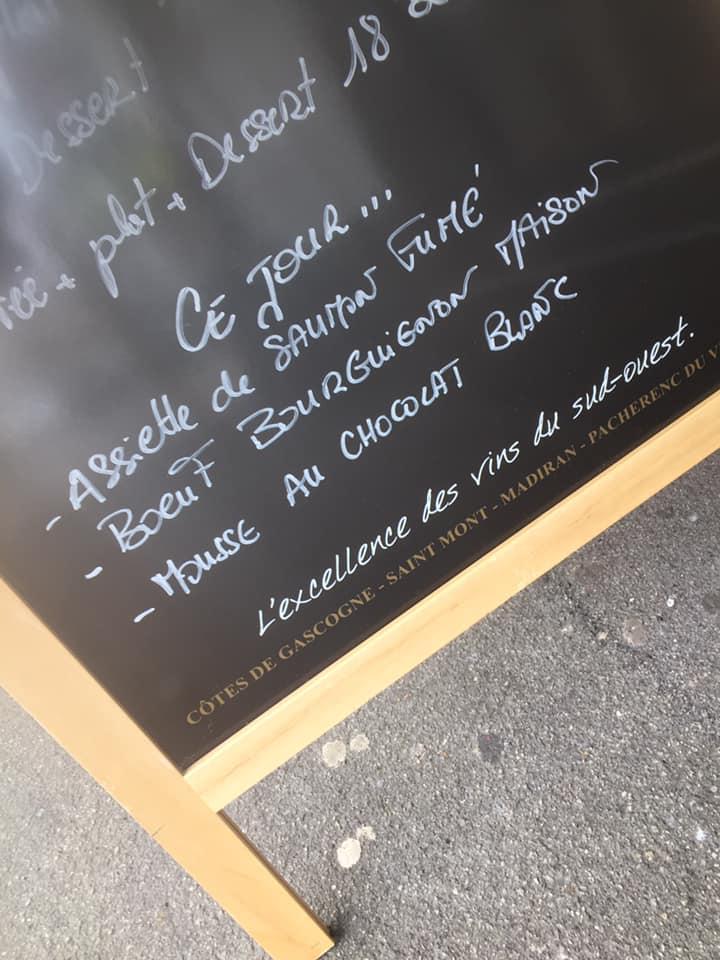 Dessert
+ plat + Dessert 18
CE JOUR...
- Assiette de SAUMON FUMÉ
- BOEUF BOURGUIGNON MAISON
- MOUSSE AU CHOCOLAT BLANC
L'excellence des vins du sud-ouest.
CÔTES DE GASCOGNE - SAINT MONT - MADIRAN - PACHERENC DU